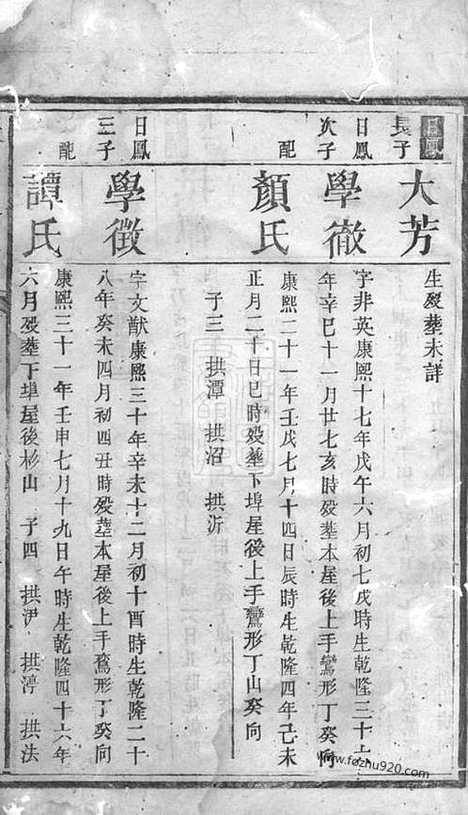 日鳳長子 大芳 生歿塟未詳
日鳳次子 學徹 字非英康熙十七年戊午六月初七戌時生乾隆三十六
年辛巳十一月廿七亥時歿塟本屋後上手鸞形丁癸向
配 顏氏 康熙二十一年壬戌七月十四日辰時生乾隆四年己未
正月二十日巳時歿塟下埠屋後上手鸞形丁山癸向
子三 拱潭 拱沼 拱沂
日鳳三子 學徵 字文猷康熙三十年辛未十二月初十酉時生乾隆二十
八年癸未四月初四丑時歿塟本屋後上手鸞形丁癸向
配 譚氏 康熙三十一年壬申七月十九日午時生乾隆四十六年
六月歿塟下埠屋後杉山 子四 拱尹 拱渟 拱法
www.fozhu920.com